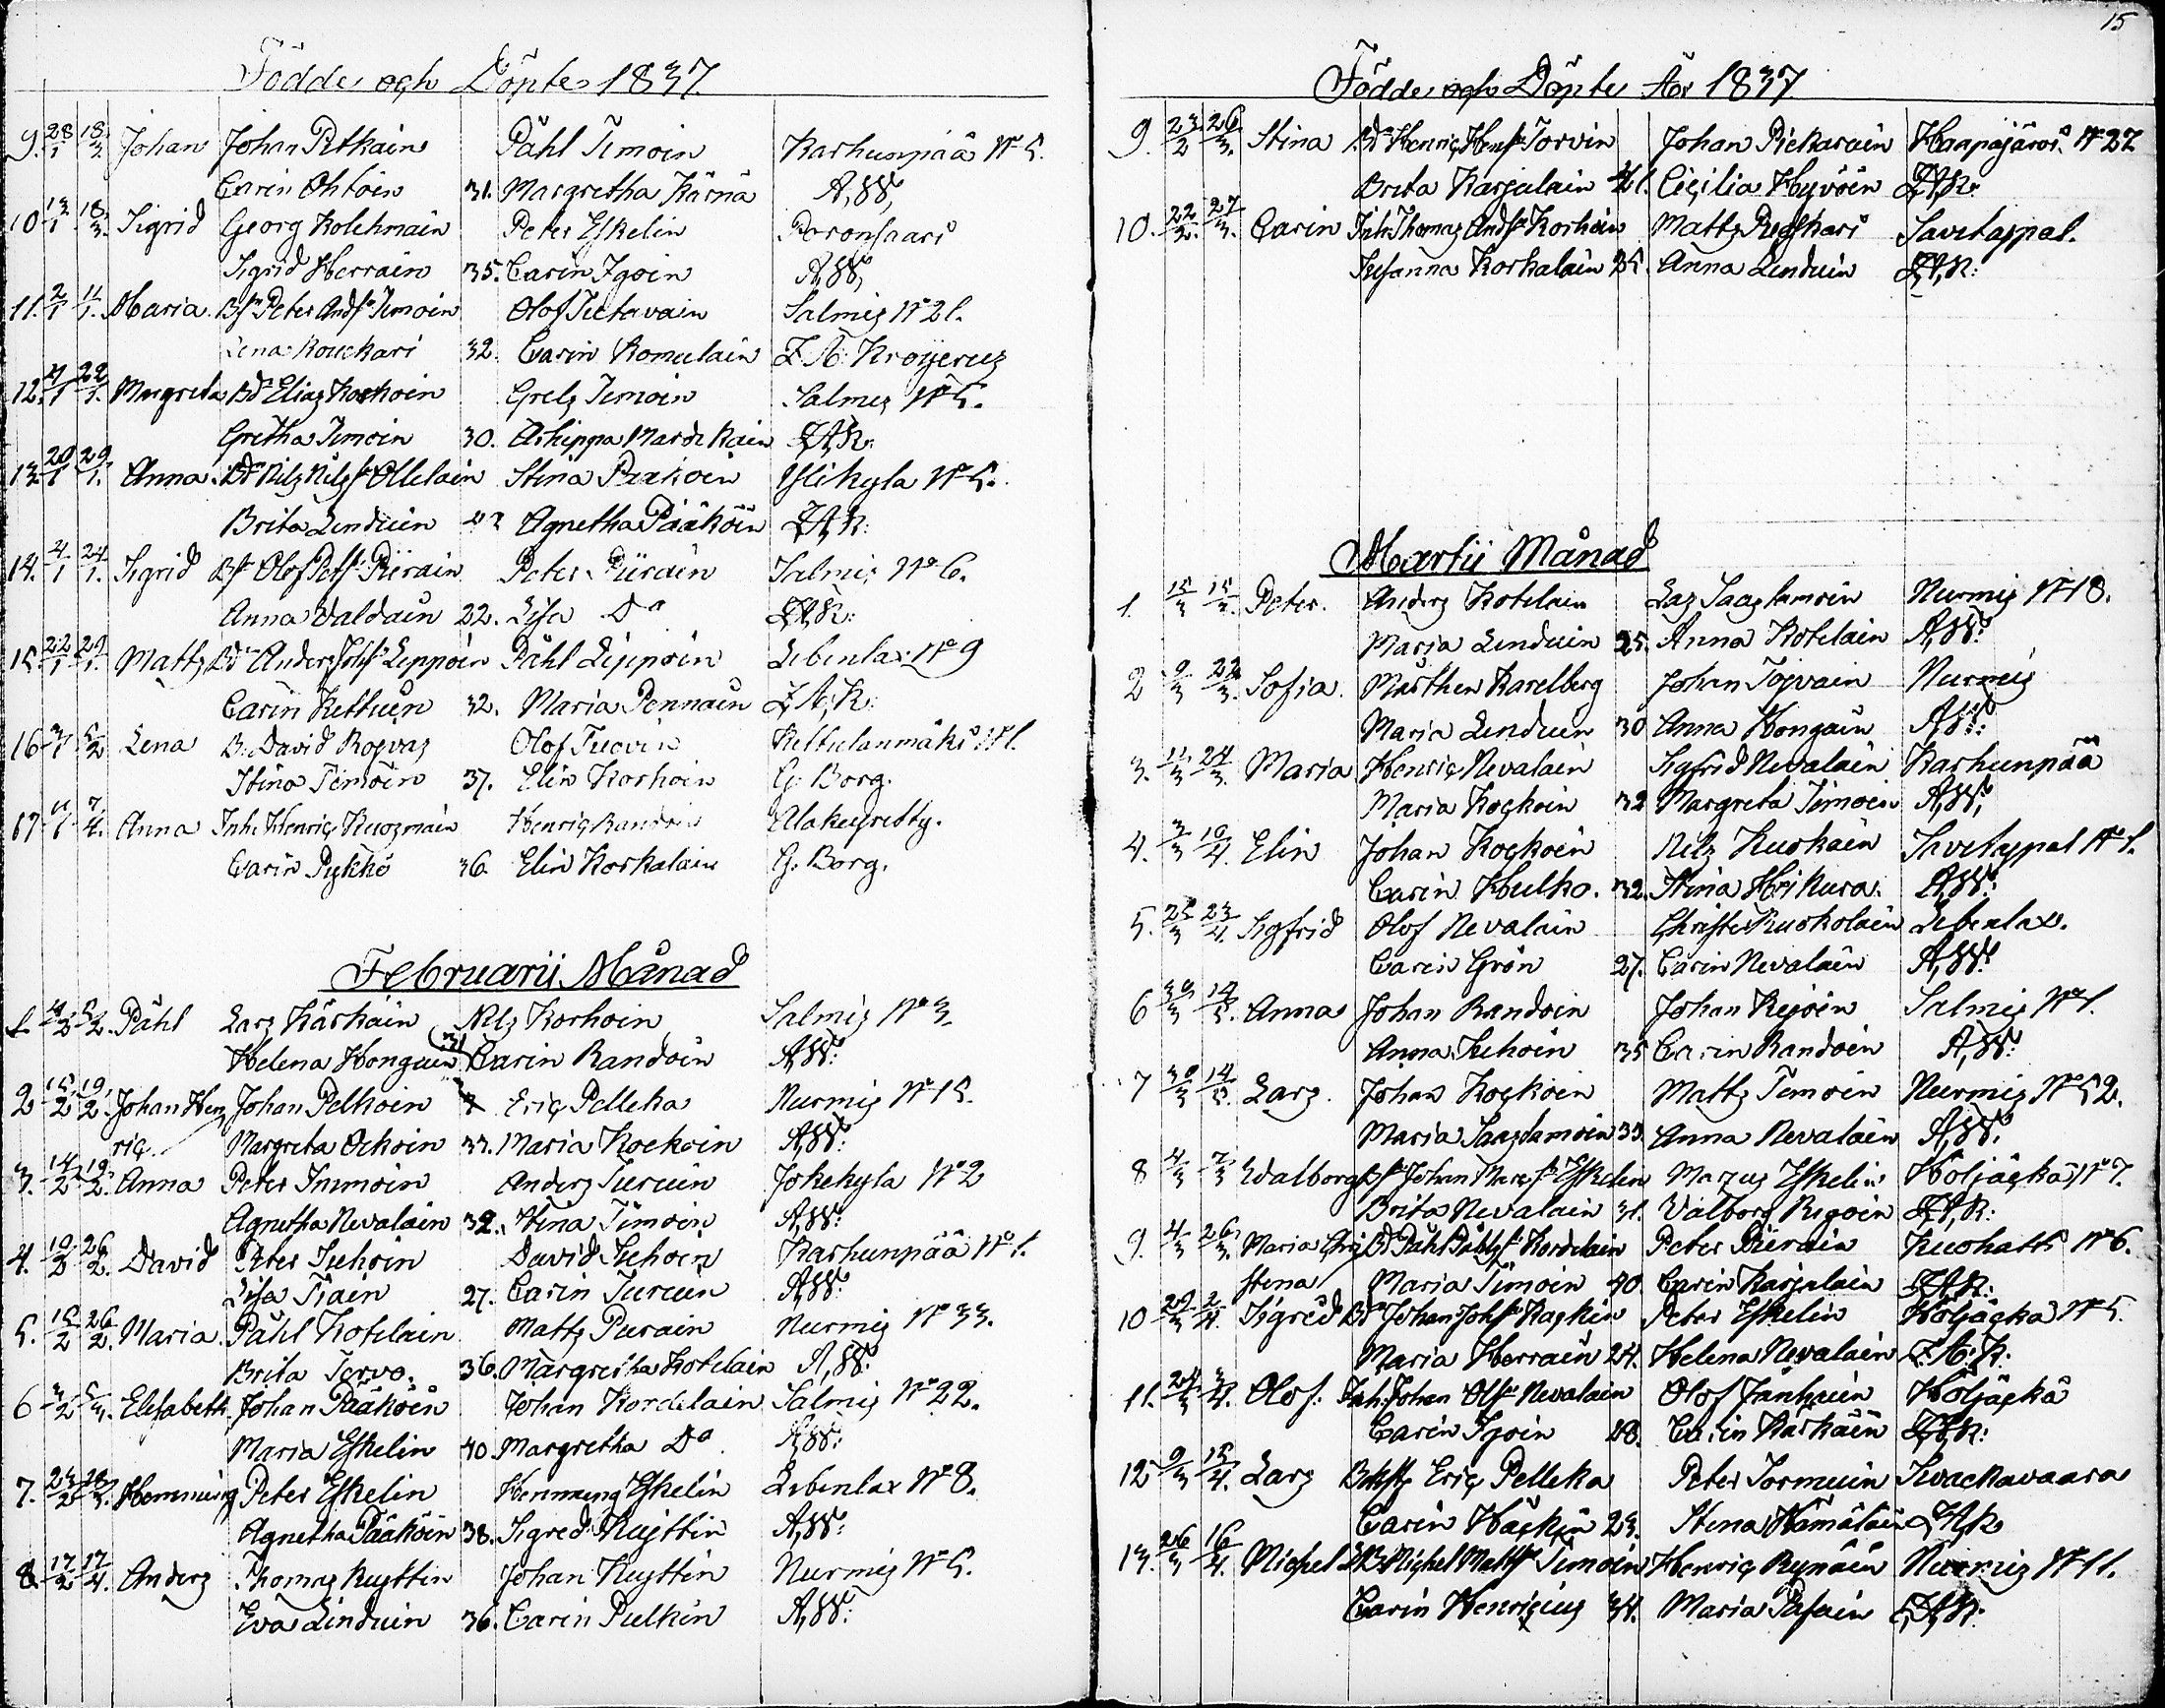 Födde och Döpte 1837.
9. 28/1 18/3. Johan Johan Pitkäin Påhl Timoin Karhunpää No 5.
Carin Ohtoin 31. Margretha Kärnä A,W,
10 13/1 18/3. Sigrid Georg Kolehmain Peter Eskelin Poronsaari
Sigrid Herrain 35. Carin Igoin A,W,
11. 2/1 11/1. Maria. Bs Peter Ands Timoin Olof Tuetavain Salmis No 21.
Lena Rouckari 32. Carin Romulain Z. A: Kroijerus
12. 22/1. Margreta Bd Elias Korhoin Grels Timoin Salmis No 5.
Gretha Timoin 30. Askippa Mardikain ZAK:
13. 20/1 29/1. Anna. Bd Nils Nilss Ollilain Stina Pirhoin Ylikyla No 5.
Brita Linduin Agnetha Pääköin ZAK:
14. 4/1 24/1. Sigrid Bs Olof Pets Piirain Peter Piirain Salmis No 6.
Anna Valdain 22. Lisa Do ZAK:
15. 22/1 29/1. Matts Bd Anders Johs Leppoin Påhl Leppoin Libenlax No 9
Carin Kettuin 32. Maria Pennain Z,A,K:
16 5/2 Lena B. David Rogvas Olof Tuovin Kettulanmäki No 1.
Stina Timoin 37. Elin Korhoin G. Borg.
17. 7/4. Anna Inh. Henric Kuosmain Henric Randoin Alakuyretty.
Carin Pykkö 36. Elin Korkalain G. Borg.
Februarii Månad
1. 5/2. Påhl Lars Kärkäin Nils Korhoin Salmis No 3.
Helena Honguin 31 Carin Randoin A,W:
2 15/2 19/2. Johan Hen Johan Pelkoin Eric Pelleka Nurmis No 15.
ric. Margreta Ockoin 33. Maria Kockoin A,W:
3. 14/2 19/2. Anna Peter Immoin Anders Turuin Jokikyla No 2
Agnetha Nevalain 32. Stina Timoin A,W:
4. 10/2 26/2. David Peter Tuhoin David Tuhoin Karhunpää No 1.
Lisa Tiain 27. Carin Turuin A,W:
5. 15/2 26/2. Maria. Påhl Kotelain Matts Purain Nurmis No 33.
Brita Torvo. 36. Margretha Kotelain A,W:
6 3/2 5/3. Elisabeth. Johan Pääköin Johan Kordelain Salmis No 22.
Maria Eskelin 40. Margretha Do A,W:
7. 23/2 28/3. Hemming Peter Eskelin Hemming Eskelin Libenlax No 8.
Agnetha Pääköin 38. Sigred Kuittin A,W:
8. 17/2 17/4. Anders Thomas Kuyttin Johan Kuyttin Nurmis No 5.
Eva Linduin 36. Carin Pulkin A,W:
15
Födde och Döpte År 1837
9. 23/2 26/3. Stina Bd Henric Hens Torvin Johan Pickarain Haapajärvi. No 27
Brita Karjalain 41. Cicilia Hyvöin ZAK:
10. 22/2. 27/3. Carin Inh: Thomas Ands Korhoin Matts Puckari Savikappal.
Susanna Korkalain 35. Anna Linduin ZAK:
Martii Månad
1. 15/3 15/3. Peter. Anders Kotelain Las Saastamoin Nurmis No 18.
Maria Linduin 25. Anna Kotelain A,W:
2 9/3 22/3. Sofia. Marthen Karelberg Johan Toivain Nurmis
Maria Linduin 30 Anna Hongain A,W:
3. 11/3 24/3. Maria Henric Nevalain Sigfrid Nevalain Karhunpää
Maria Kockoin 32 Margreta Timoin A,W,
4. 3/3 10/4. Elin Johan Kockoin Nils Kuokain Savikappal No 1.
Carin Hulko. 32. Stina Hirkura. A,W:
5. 25/3 23/4. Sigfrid Olof Nevalain Christer Kuokolain Libenlax.
Carin Grön 27. Carin Nevalain A,W:
6 30/3 14/5. Anna Johan Randoin Johan Rejoin Salmis No 1.
Anna Tuhoin 35 Carin Randoin A,W:
7 30/3 14/5. Lars. Johan Kockoin Matts Timoin Nurmis No 52.
Maria Saastamoin 33. Anna Nevalain A,W,
8 4/3 7/3 Walborg Bs Johan Marcs Eskelin Marcus Eskelin Höljäckä No 7.
Brita Nevalain 31. Valborg Rigoin ZA,K:
9. 4/3 26/3. Maria Chri Bd Påhl Påhls Kordelain Peter Piirain Kuohatti No 6.
stina Maria Timoin 40. Carin Karjalain ZAK:
10 29/3 2/4. Sigred Bd Johan Johs Hackin Peter Eskelin Höljäcka No 5.
Maria Herrain 24. Helena Nevalain Z. A: K.
11. 24/3 3/4. Olof. Inh. Johan Ols Nevalain Olof Jänhuin Höljäckä
Carin Igoin 48. Carin Kärkäin ZAK:
12 9/3 15/4. Lars Eric Pelleka Peter Tormuin Kvackavaara
Carin Häckin 23. Stina Hämäläin ZAK
13. 26/3 16/4. Michel Michel Matts Timoin Henric Rynäin Nurmis No 11.
Carin Henricius 34. Maria Pasain ZAK: